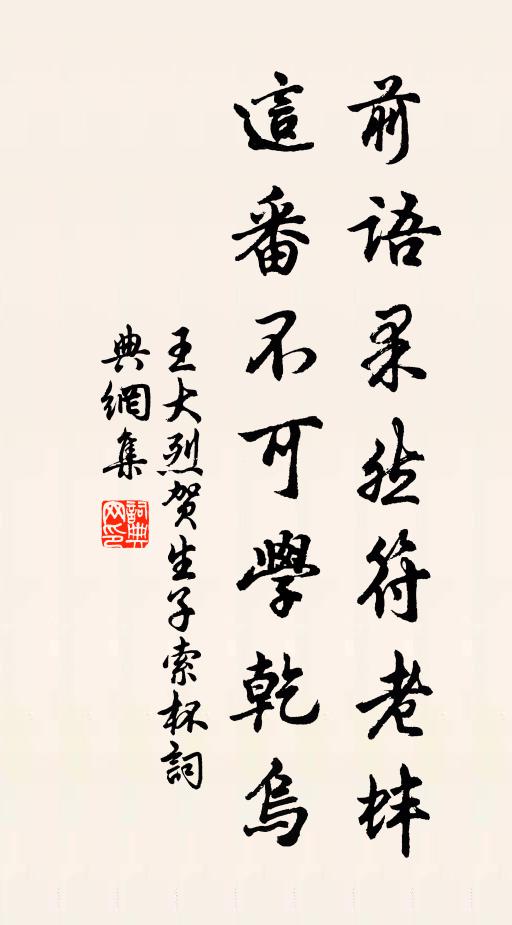 前語果然符老蚌
這番不可學乾烏
王大烈賀生子索杯詞
典網集
詞典網印